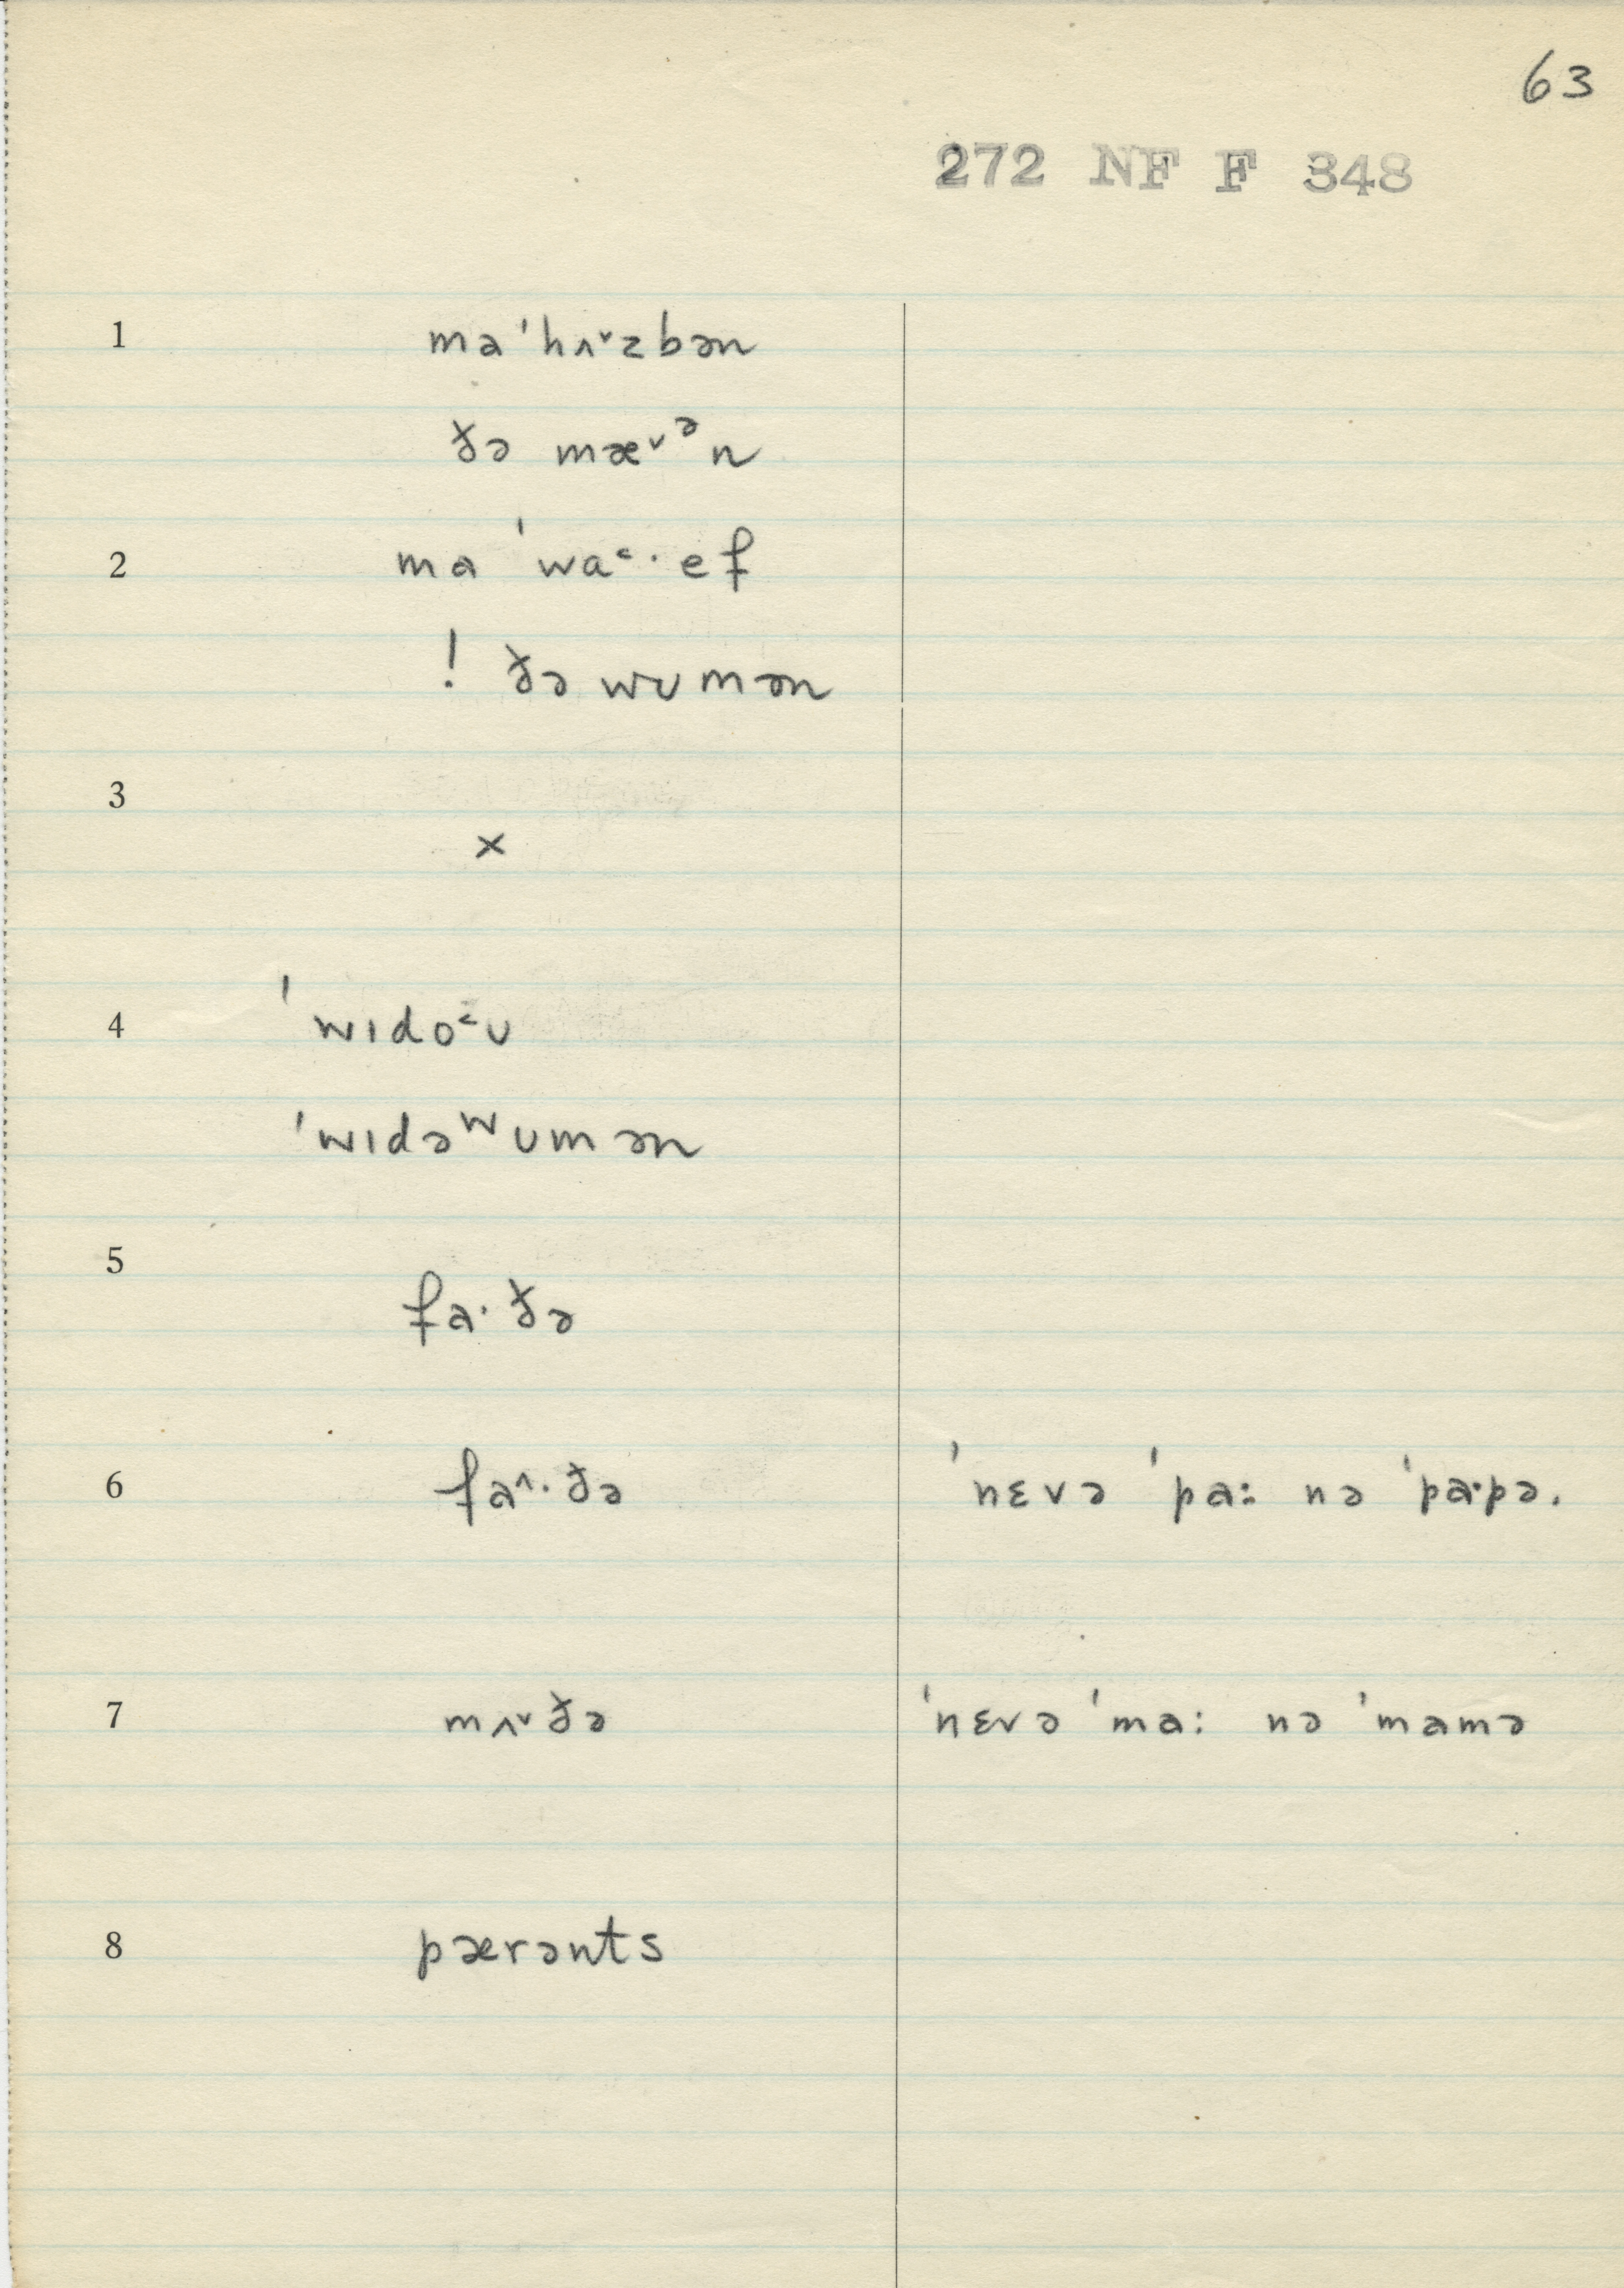 63
272 NF F 348
1 ma ˈhʌ˅zbən
ðə mæ˅ᵊn
2 ma ˈwa˂·ef
! ðə wʊmən
3
×
4 ˈwɪdo˂ʊ
ˈwɪdəʷʊmən
5
fa·ðə
6 fa˄·ðə ˈnɛvə ˈpa: nə ˈpa·pə.
7 mʌ˅ðə ˈnɛvə ˈma: nə ˈmamə
8 pærənts